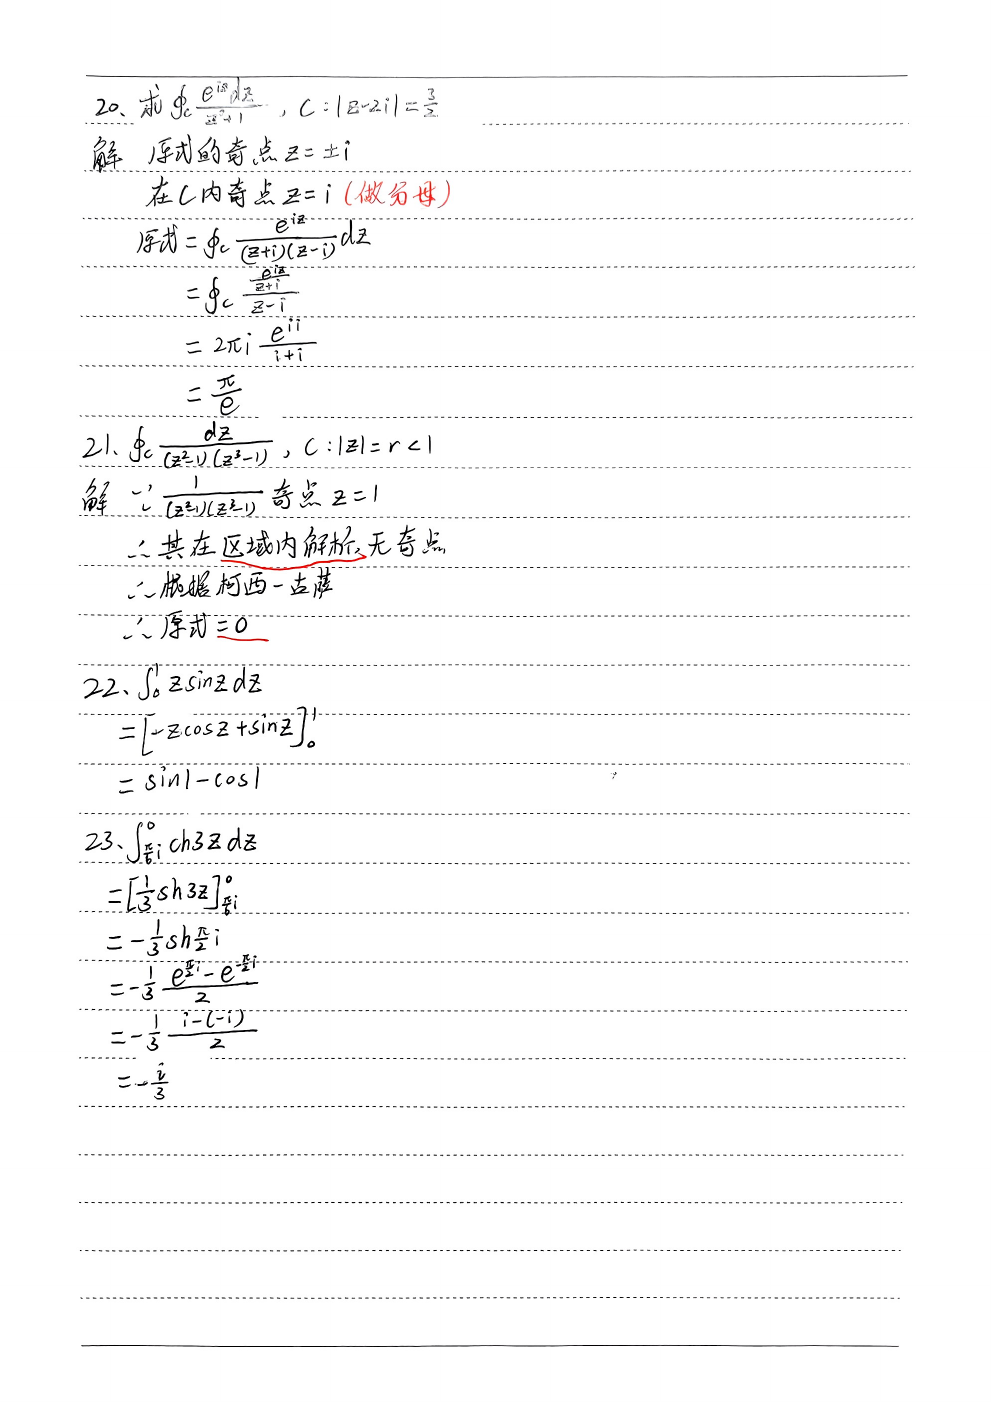 20、求 ∮_C e^{iz}dz/(z²+1) , C:|z-2i|=3/2
解 原式的奇点 z=±i
在C内奇点 z=i (做分母)
原式=∮_C e^{iz}/((z+i)(z-i)) dz
=∮_C (e^{iz}/(z+i))/(z-i)
=2πi e^{ii}/(i+i)
=π/e
21、∮_C dz/((z²-1)(z³-1)) , C:|z|=r<1
解 ∵ 1/((z²-1)(z³-1)) 奇点 z=1
∴其在区域内解析,无奇点
∴根据柯西-古萨
∴原式=0
22、∫₀¹ z sinz dz
=[-zcosz+sinz]₀¹
=sin1-cos1
23、∫_{π/6 i}^0 ch3z dz
=[1/3 sh3z]_{π/6 i}^0
=-1/3 sh π/2 i
=-1/3 (e^{π/2 i}-e^{-π/2 i})/2
=-1/3 (i-(-i))/2
=-i/3